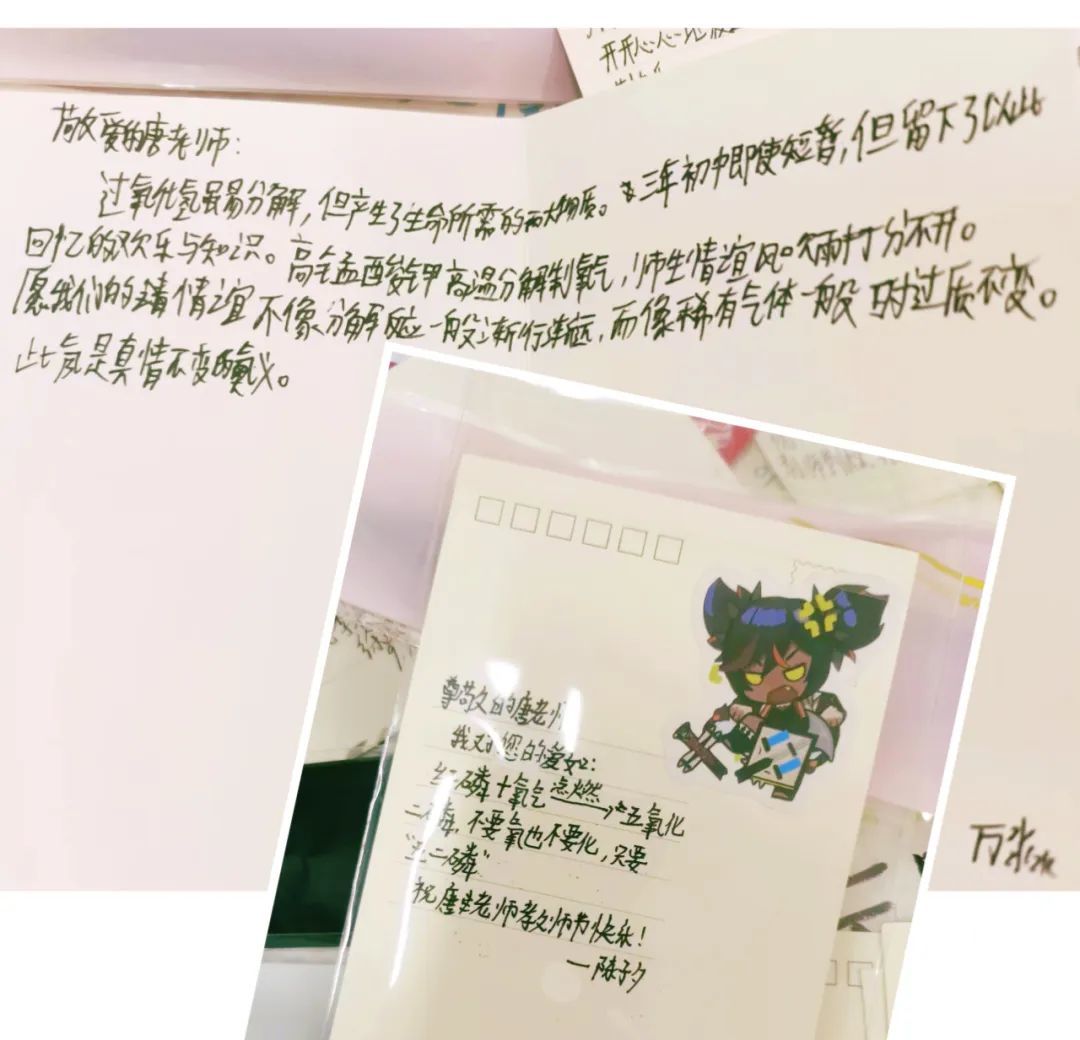 开开心心地
敬爱的唐老师：
过氧化氢虽易分解，但产生了生命所需的两大物质。三年初中即使短暂，但留下了以
回忆的欢乐与知识。高锰酸钾高温分解制氧气，师生情谊风吹雨打分不开。
愿我们的情谊不像分解反应一般渐行渐远，而像稀有气体一般时过质不变。
此氮是真情不变的氮义。
万
尊敬的唐老师
我对您的爱如：
红磷+氧气点燃→五氧化
二磷，不要氧也不要化，只要
“五二磷”
祝唐老师教师节快乐！
—陈子夕